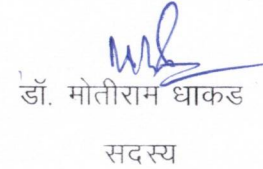 डॉ. मोतीराम धाकड
सदस्य